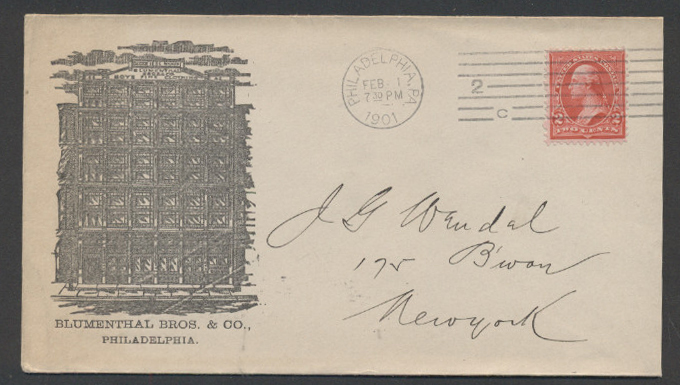 BLUMENTHAL BROS. & CO.,
PHILADELPHIA.
PHILADELPHIA, PA.
FEB 1
7 30 PM
1901
2
C
TWO CENTS
J G Wendel
175 B'way
Newyork